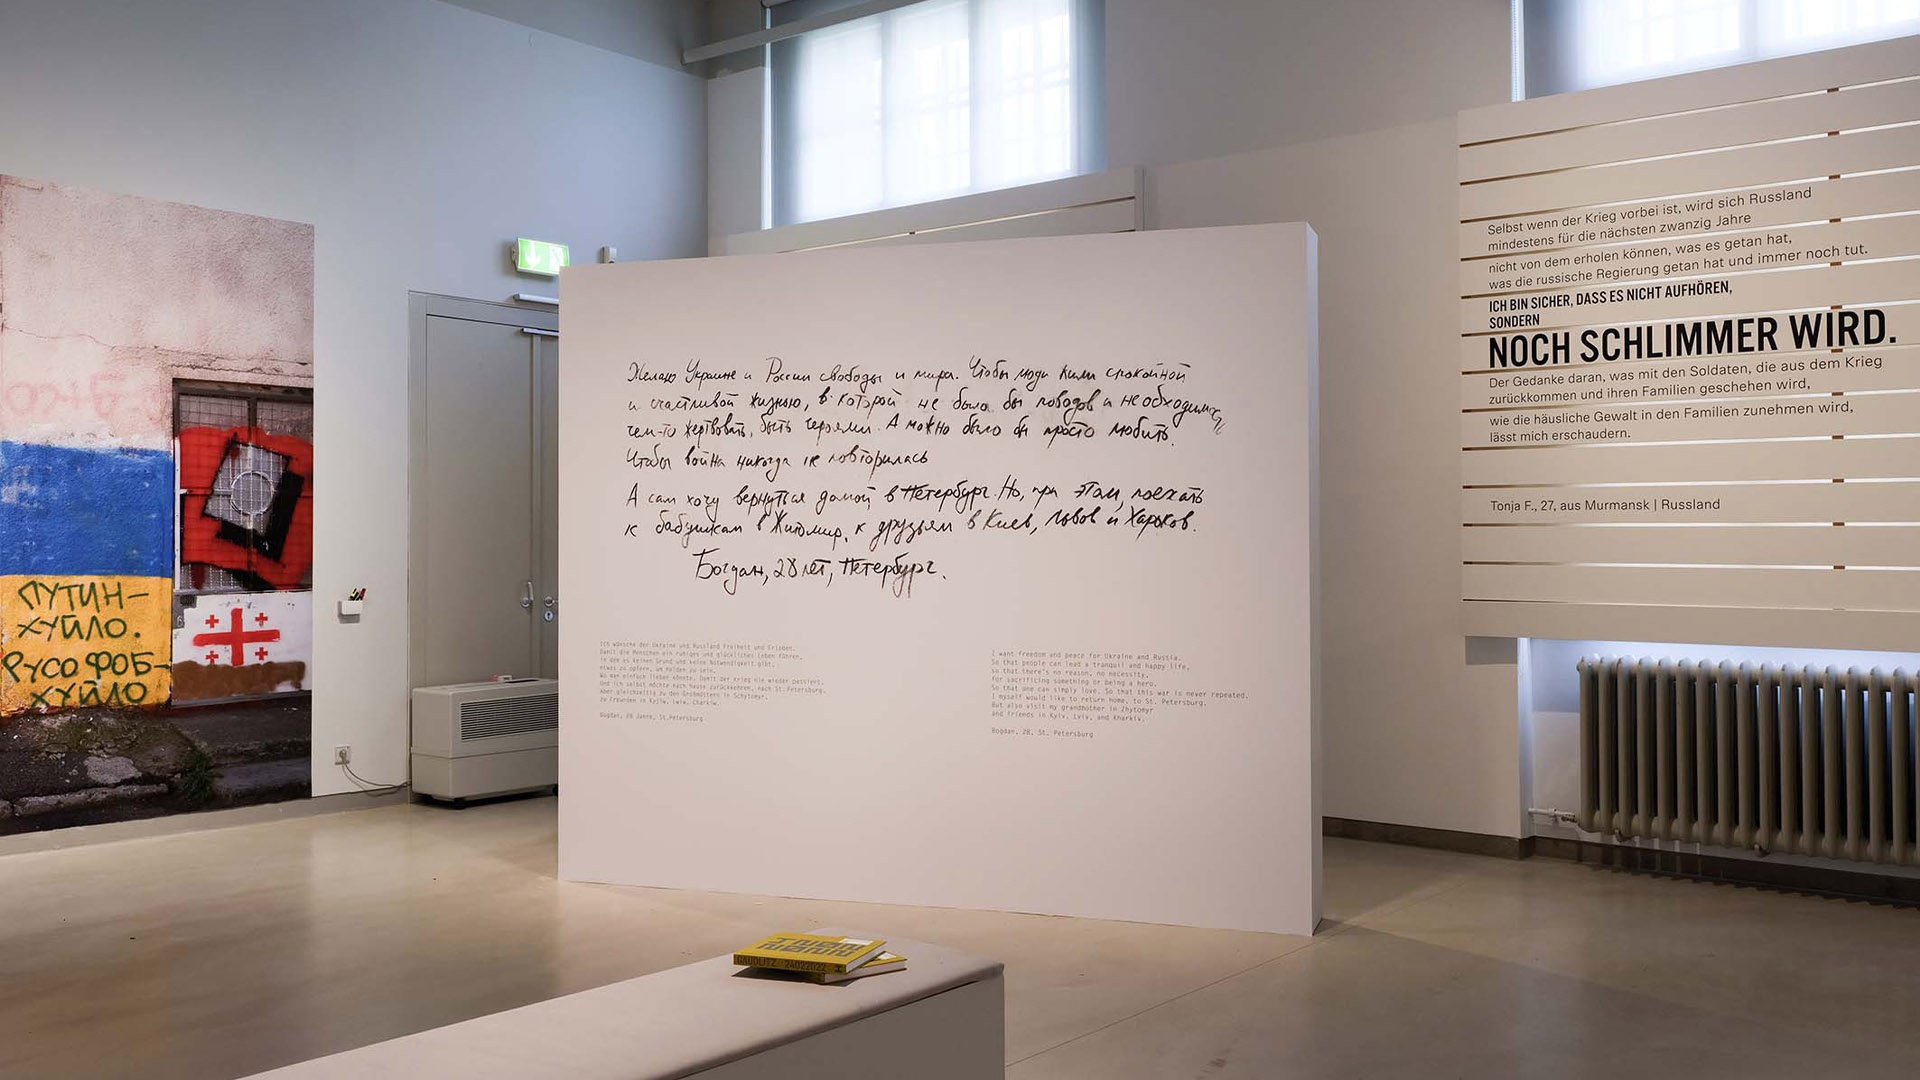 ПУТИН–
ХУЙЛО.
РУСОФОБ–
ХУЙЛО
Желаю Украине и России свободы и мира. Чтобы люди жили спокойной
и счастливой жизнью, в которой не было бы поводов и необходимости
чем-то жертвовать, быть героями. А можно было бы просто любить.
Чтобы война никогда не повторилась
А сам хочу вернуться домой, в Петербург. Но, при этом, поехать
к бабушкам в Житомир, к друзьям в Киев, Львов и Харьков.
Богдан, 28 лет, Петербург.
Ich wünsche der Ukraine und Russland Freiheit und Frieden.
Damit die Menschen ein ruhiges und glückliches Leben führen,
in dem es keinen Grund und keine Notwendigkeit gibt,
etwas zu opfern, um Helden zu sein.
Wo man einfach lieben könnte. Damit der Krieg nie wieder passiert.
Und ich selbst möchte nach Hause zurückkehren, nach St. Petersburg.
Aber gleichzeitig zu den Großmüttern in Schytomyr,
zu Freunden in Kyjiw, Lwiw, Charkiw.
Bogdan, 28 Jahre, St.Petersburg
I want freedom and peace for Ukraine and Russia.
So that people can lead a tranquil and happy life,
so that there's no reason, no necessity,
for sacrificing something or being a hero.
So that one can simply love. So that this war is never repeated.
I myself would like to return home, to St. Petersburg.
But also visit my grandmother in Zhytomyr
and friends in Kyiv, Lviv, and Kharkiv.
Bogdan, 28, St. Petersburg
Selbst wenn der Krieg vorbei ist, wird sich Russland
mindestens für die nächsten zwanzig Jahre
nicht von dem erholen können, was es getan hat,
was die russische Regierung getan hat und immer noch tut.
ICH BIN SICHER, DASS ES NICHT AUFHÖREN,
SONDERN
NOCH SCHLIMMER WIRD.
Der Gedanke daran, was mit den Soldaten, die aus dem Krieg
zurückkommen und ihren Familien geschehen wird,
wie die häusliche Gewalt in den Familien zunehmen wird,
lässt mich erschaudern.
Tonja F., 27, aus Murmansk | Russland
GAUDLITZ 24022022